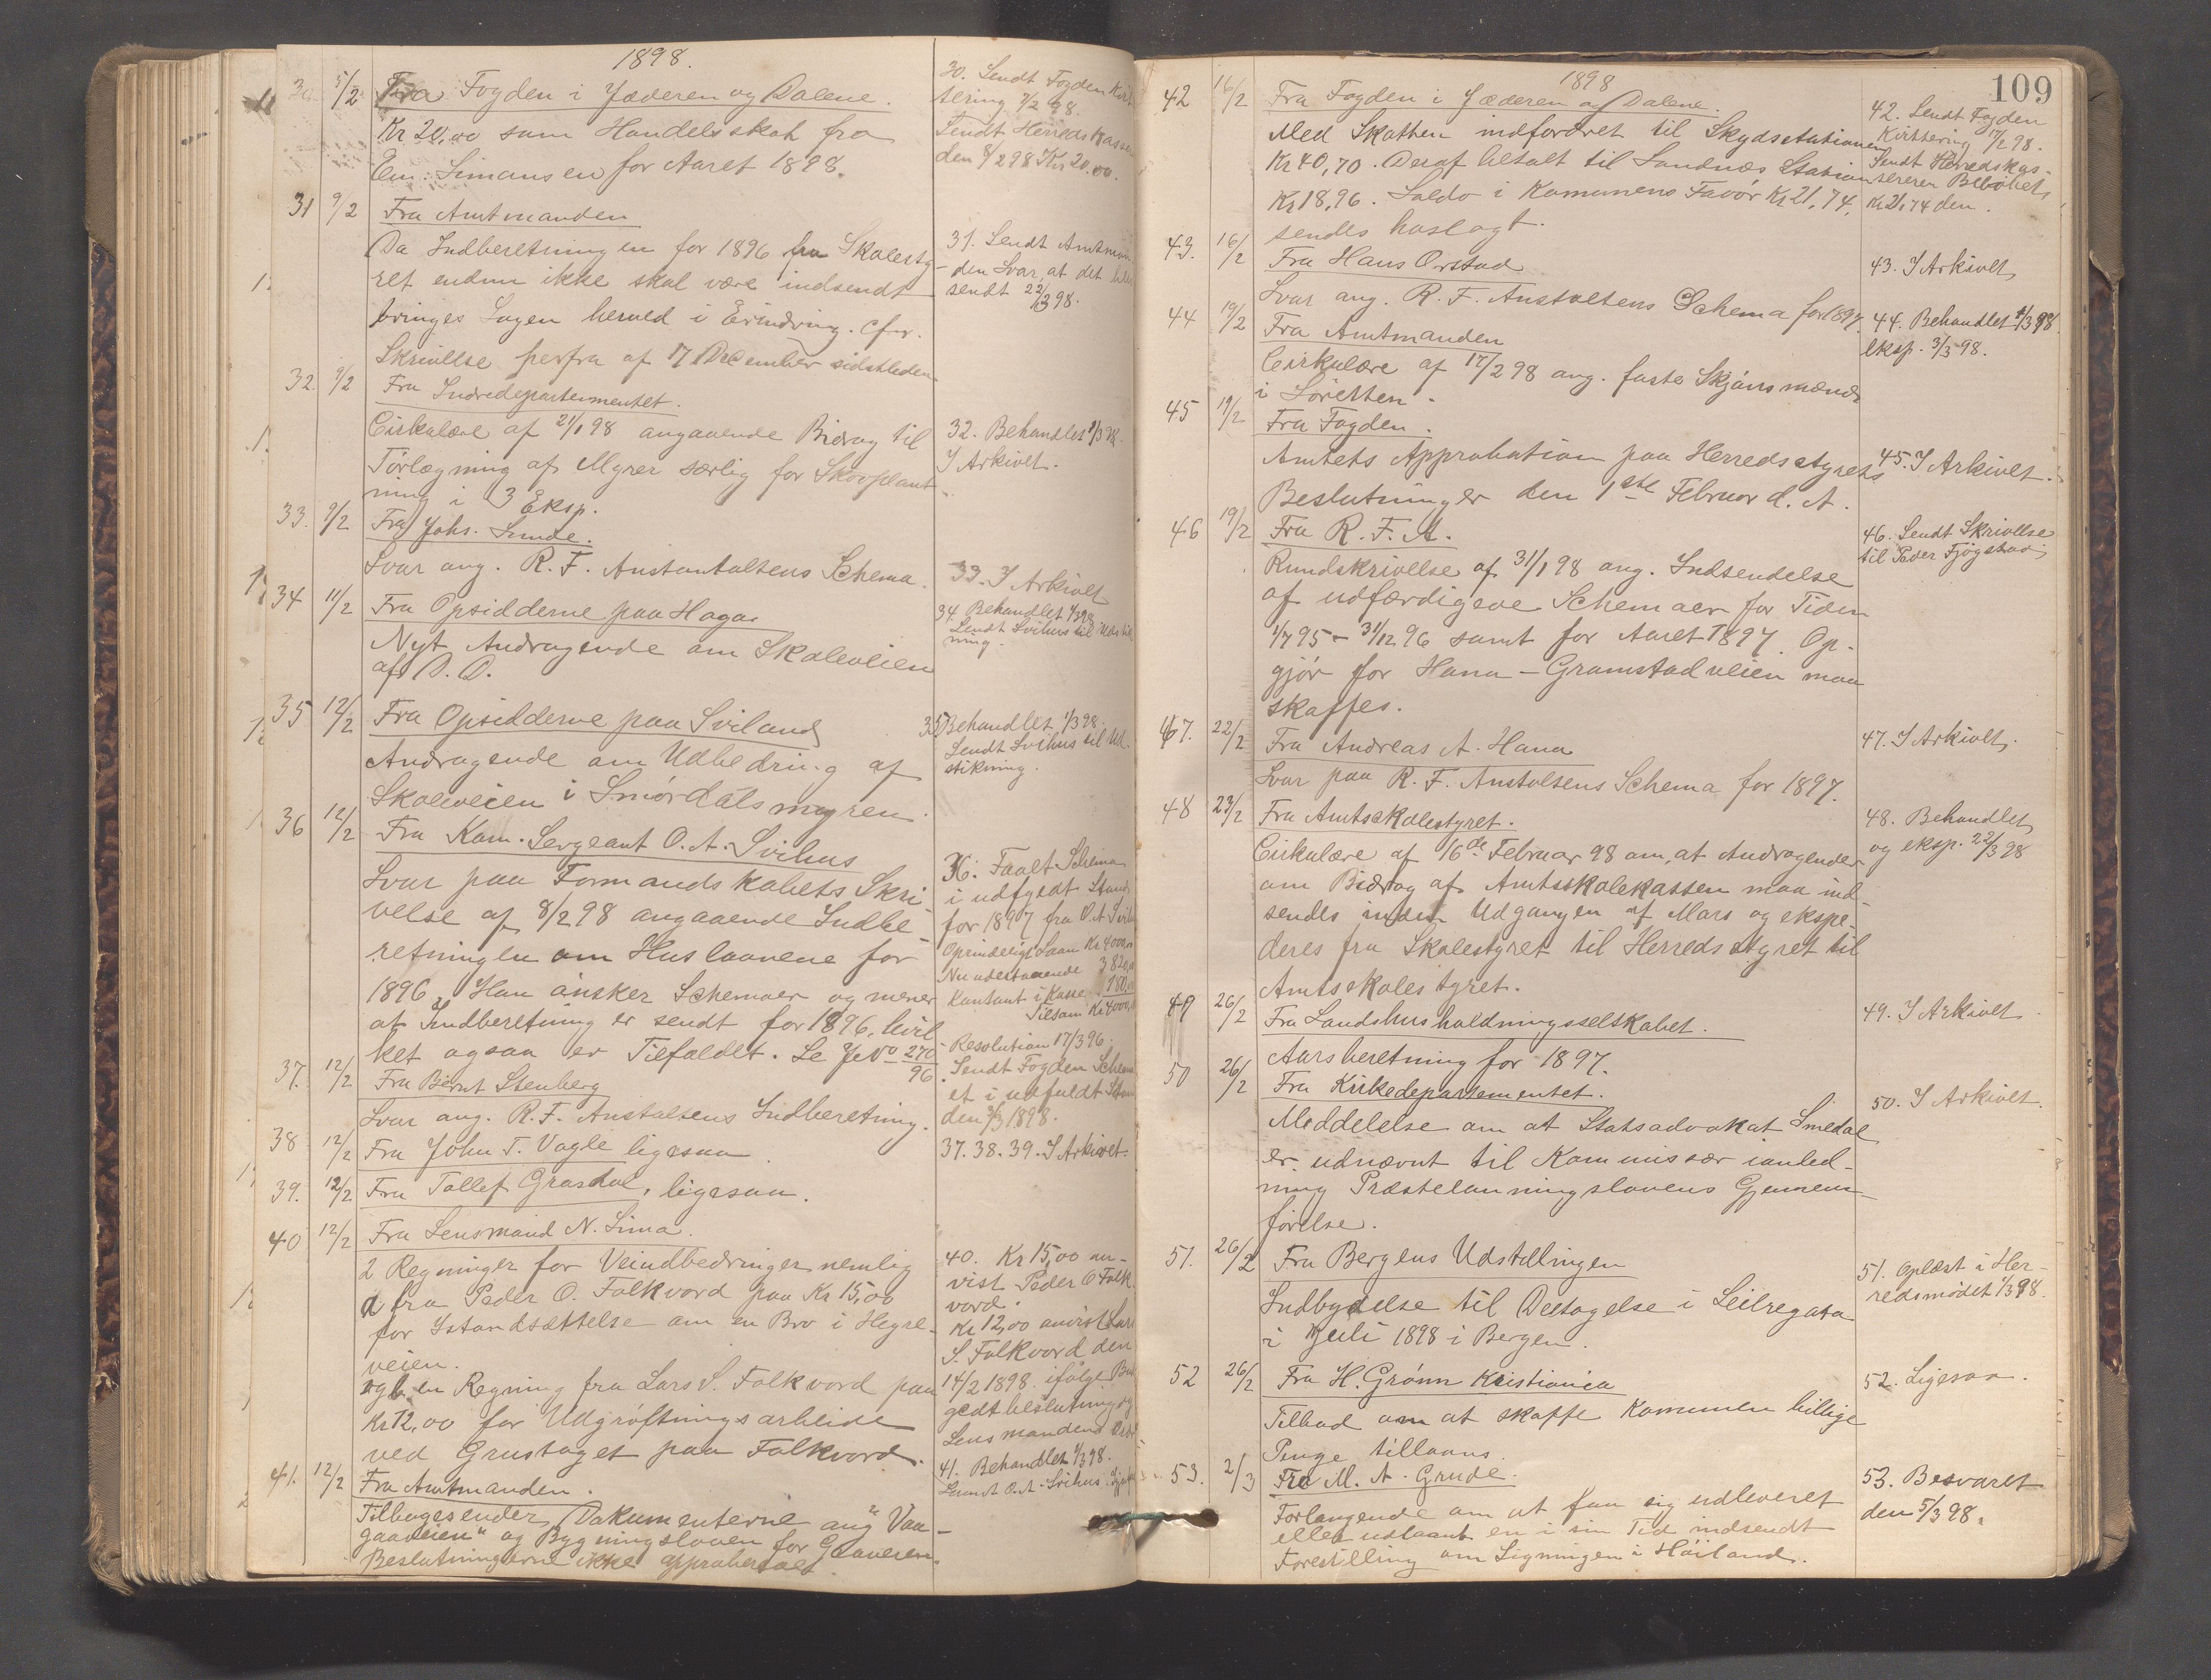 1898.
30 5/2 Fra Fogden i Jæderen og Dalene.
Kr 20,00 som Handelsskat fra
Em. Simonsen for Aaret 1898.
30. Sendt Fogden Kvit-
tering 7/2 98.
Sendt Herredskassen
den 8/2 98 Kr. 20.00.
31 9/2 Fra Amtmanden
Da Indberetningen for 1896 fra Skolesty-
ret endnu ikke skal være indsendt
bringes Sagen herved i Erindring. Cfr.
Skrivelse herfra af 17 December sidstleden.
31. Sendt Amtman-
den Svar, at det blev
sendt 22/3 98.
32. 9/2 Fra Indredepartementet.
Cirkulære af 21/1 98 angaaende Bidrag til
Tørlægning af Myrer særlig for Skovplant-
ning i 3 Eksp.
32. Behandlet 1/3 98.
I Arkivet.
33. 9/2 Fra Johs. Lunde.
Svar ang. R. F. Anstantaltens Schema.
33. I Arkivet
34 11/2 Fra Opsidderne paa Hogas
Nyt Andragende om Skoleveien
af D. D.
34. Behandlet 1/3 98
Sendt Svihus til Udstik-
ning.
35 12/2 Fra Opsidderne paa Sviland
Andragende om Udbedring af
Skoleveien i Smørdalsmyren.
35 Behandlet 1/3 98.
Sendt Svihus til Ud-
stikning.
36 12/2 Fra Kom. Sergeant O. A. Svihus
Svar paa Formandskabets Skri-
velse af 8/2 98 angaaende Indbe-
retningen om Huslaanene for
1896. Han ønsker Schemaer og mener
at Indberetning er sendt for 1896, hvil-
ket ogsaa er Tilfældet. Se J. No 270/96
36: Faaet Schema
i udfyldt Stand
for 1897 fra O. A. Svihus
Oprindeligt Laan Kr 4000,00
Nu udestaaende 3820,00
Kontant i Kasse 180,00
Tilsam Kr 4000,00
Resolution 17/3 96.
Sendt Fogden Schema-
et i udfyldt Stand
den 3/3 1898.
37. 12/2 Fra Bernt Stenberg
Svar ang. R. F. Anstaltens Indberetning.
38 12/2 Fra John T. Vagle ligesaa.
37. 38. 39. I Arkivet
39. 12/2 Fra Tollef Grasdal, ligesaa.
40 12/2 Fra Lensmand N. Lima.
2 Regninger for Veiudbedringer, nemlig
a fra Peder O. Folkvord paa Kr 15,00
for Istandsættelse om en Bro i Hegre-
veien.
og b. en Regning fra Lars S. Folkvord paa
Kr 12,00 for Udgrøftningsarbeide
ved Grustaget paa Folkvord.
40. Kr 15,00 an-
vist Peder O Folk-
vord.
Kr 12,00 anvist Lars
S. Folkvord den
14/2 1898 ifølge Bud-
gedtbeslutning og
Lensmandens
41. 12/2 Fra Amtmanden.
Tilbagesender Dokumenterne ang "Vaa-
gaaveien" og Bygningsloven for Gaaveien.
Beslutningerne ikke approberaet.
41. Behandlet 1/3 98.
Sendt O. A. Svihus
109
1898
42 16/2 Fra Fogden i Jæderen og Dalene.
Med Skatten indfordret til Skydsstationen
Kr 40,70. Deraf betalt til Sandnæs Station
Kr 18,96. Saldo i Kommunens Favør Kr 21,74,
sendes hoslagt.
42. Sendt Fogden
Kvittering 17/2 98.
Sendt Herredskas-
sereren Beløbet
Kr 21,74 den.
43. 16/2 Fra Hans Orstad
Svar ang. R. F. Anstaltens Schema for 1897.
43. I Arkivet
44 19/2 Fra Amtmanden
Cirkulære af 17/2 98 ang. faste Skjønsmænd
i Søretten.
44. Behandlet 1/3 98
eksp. 3/3 98.
45 19/2 Fra Fogden.
Amtets Approbation paa Herredsstyrets
Beslutninger den 1ste Februar d. A.
45. I Arkivet.
46 19/2 Fra R. F. A.
Rundskrivelse af 31/1 98 ang. Indsendelse
af udfærdigede Schemaer for Tiden
1/7 95 - 31/12 96 samt for Aaret 1897. Op-
gjør for Hana - Gramstadveien maa
skaffes.
46. Sendt Skrivelse
til Peder Fjøgstad
47. 22/2 Fra Andreas A. Hana
Svar paa R. F. Anstaltens Schema for 1897.
47. I Arkivet.
48 23/2 Fra Amtsskolestyret.
Cirkulære af 16de Februar 98 om, at Andragender
om Bidrag af Amtsskolekassen maa ind-
sendes inden Udgangen af Mars og ekspe-
deres fra Skolestyret til Herredsstyret til
Amtsskolestyret.
48. Behandlet
og eksp. 22/3 98
49 26/2 Fra Landshusholdningsselskabet.
Aarsberetning for 1897.
49. I Arkivet
50 26/2 Fra Kirkedepartementet.
Meddelelse om at Statsadvokat Smedal
er udnævnt til Kommissær ianled-
ning Præstelønningslovens Gjennem-
førelse.
50. I Arkivet.
51. 26/2 Fra Bergens Udstillingen
Indbydelse til Deltagelse i Seilregata
i Juli 1898 i Bergen.
51. Oplæst i Her-
redsmødet 1/3 98.
52 26/2 Fra H. Grønn Kristiania
Tilbud om at skaffe Kommunen billige
Penge tillaans.
52. Ligesaa.
53. 2/3 Fra M. A. Grude.
Forlangende om at faa sig udleveret
eller udlaant en i sin Tid indsendt
Forestilling om Ligningen i Høiland.
53. Besvaret
den 5/3 98.